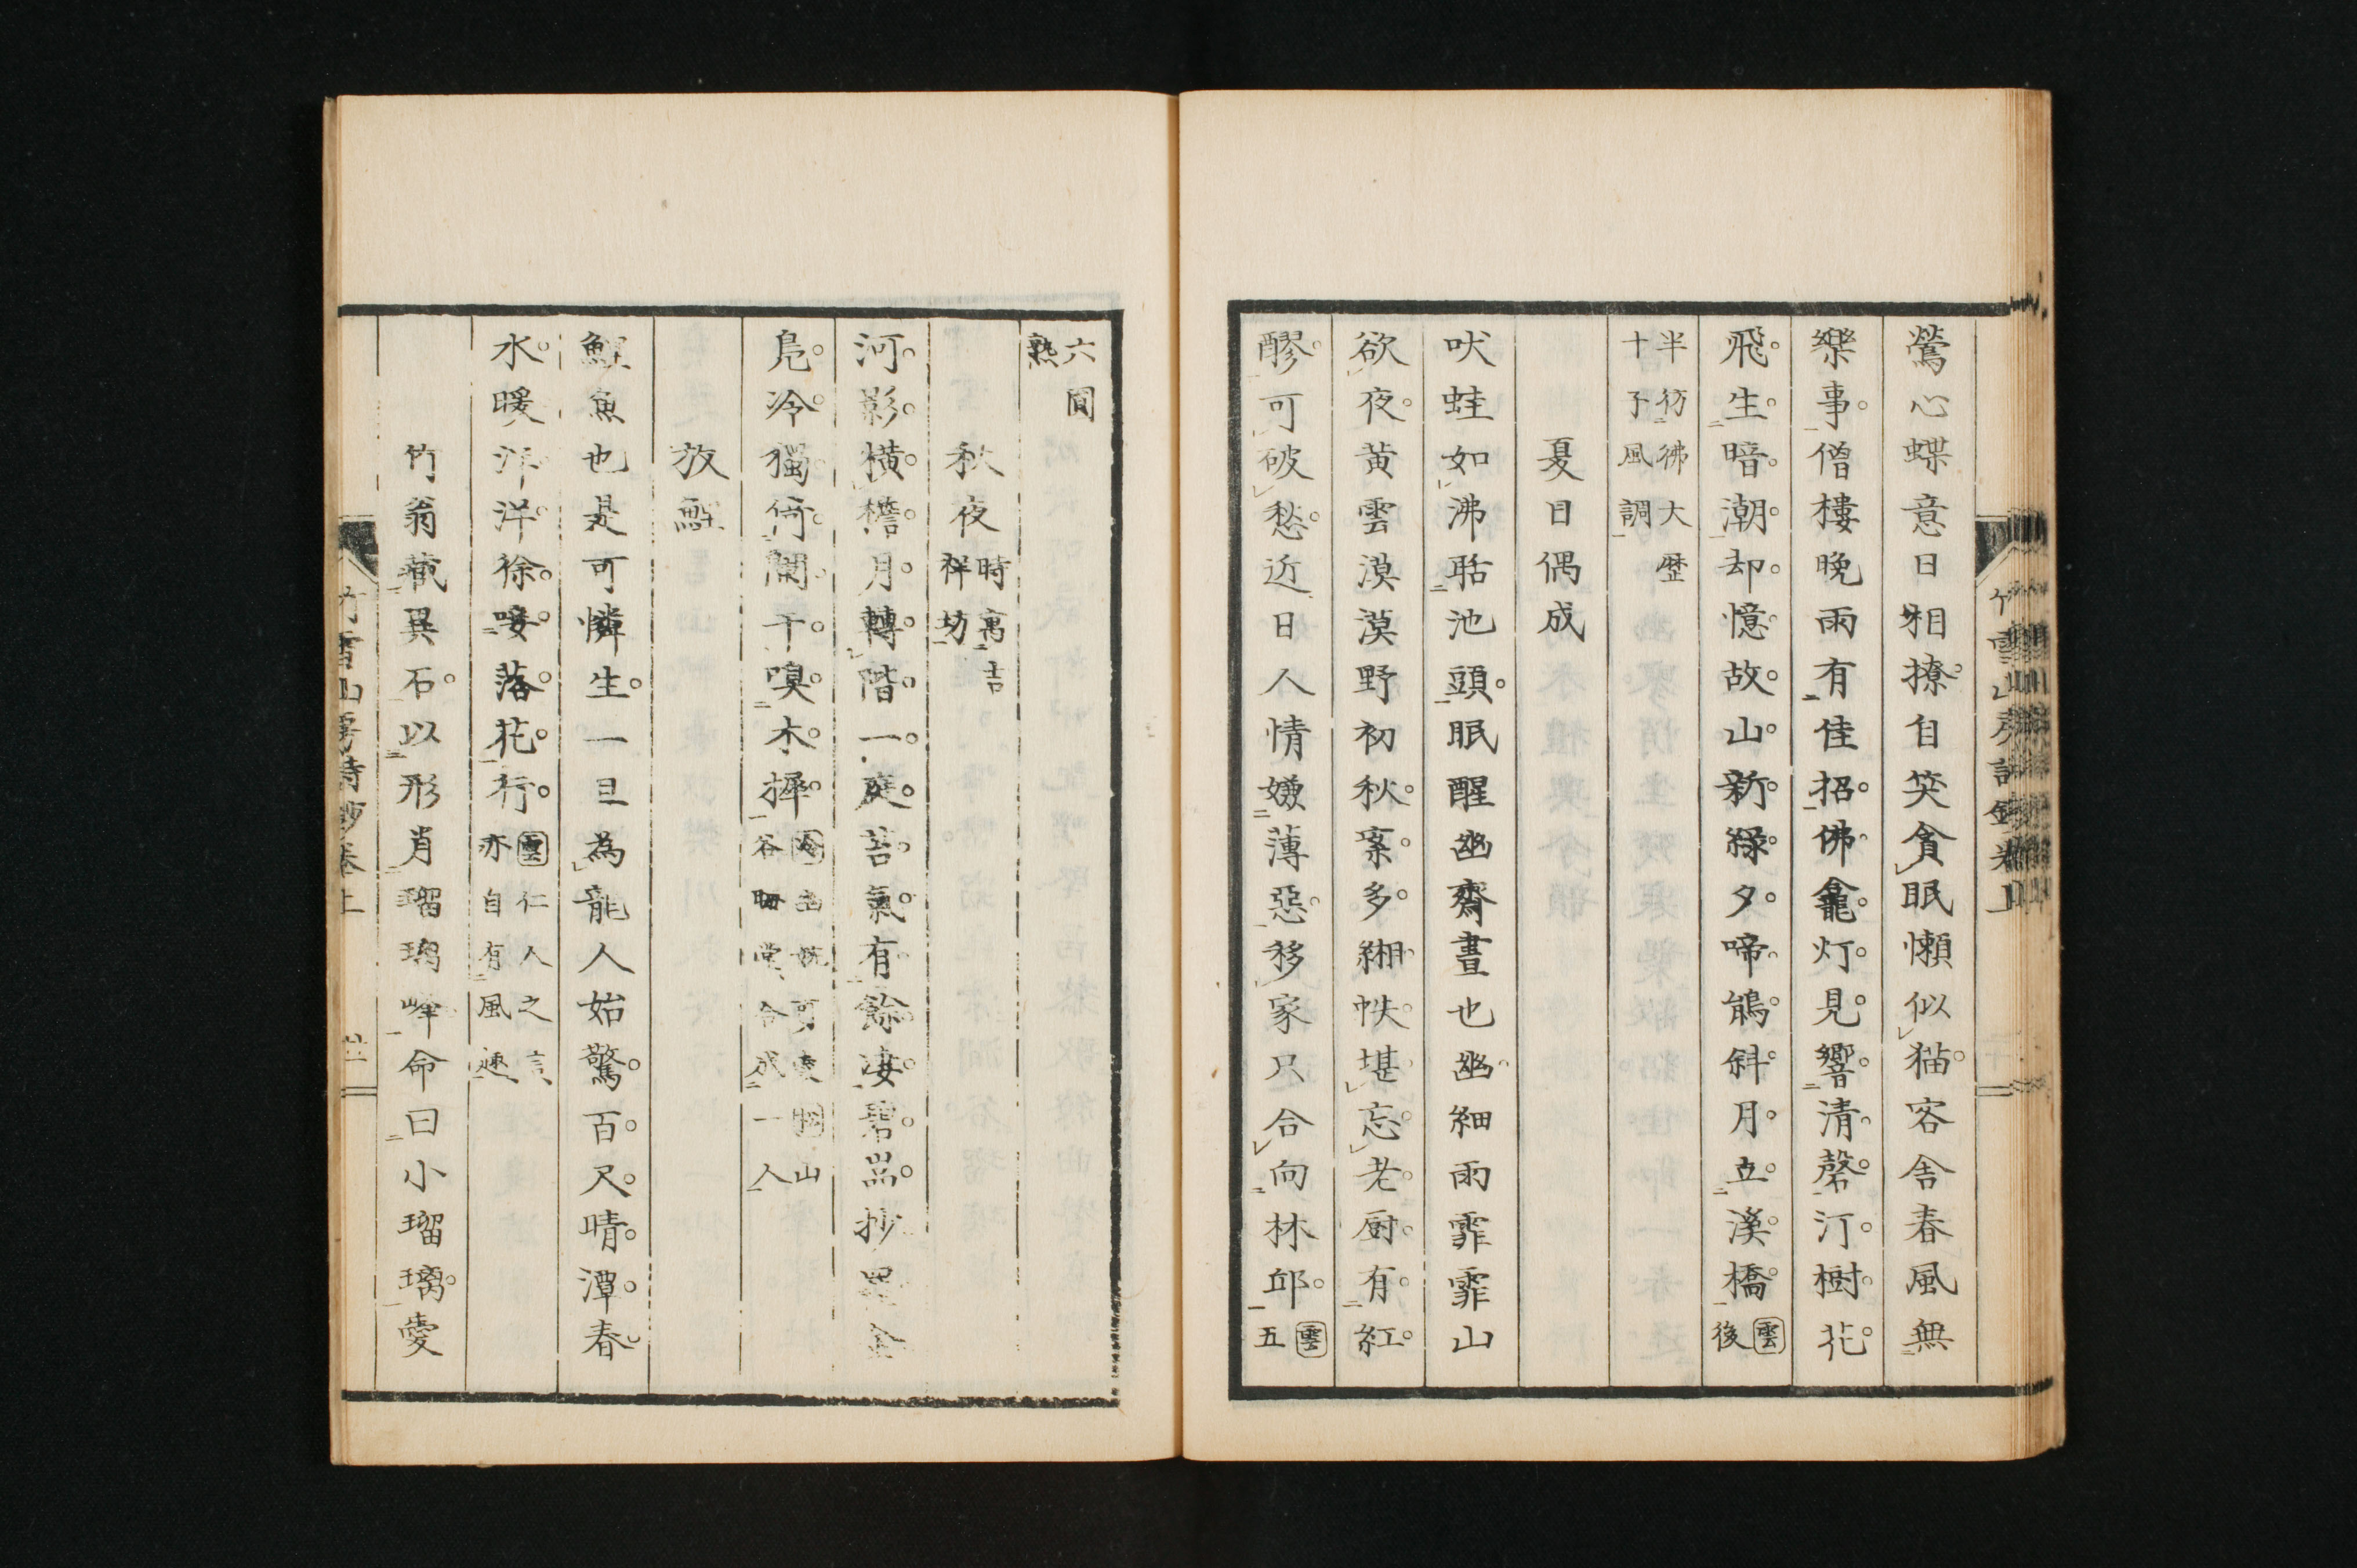 鶯心蝶意日相撩自笑貪眠懶似猫客舎春風無
樂事僧樓晩雨有佳招佛龕灯見響清磬汀樹花
飛生暗潮却憶故山新緑夕啼鵑斜月立溪橋雲後
半彷彿大歴
十子風調
夏日偶成
吠蛙如沸聒池頭眠醒幽齋晝也幽細雨霏霏山
欲夜黄雲漠漠野初秋案多緗帙堪忘老厨有紅
醪可破愁近日人情嫌薄惡移家只合向林邱雲五
六圓
熟
秋夜時寓吉
祥坊
河影横檐月轉階一庭苔氣有餘凄碧
鳬冷獨倚闌干嗅木樨
谷晦堂合成一人
放鯉
鯉魚也是可憐生一旦為龍人始驚百尺晴潭春
水暖洋洋徐唼落花行雲仁人之言
亦自有風趣
竹翁藏異石以形肖瑠璃峰命曰小瑠璃愛
竹雪山房詩鈔卷上